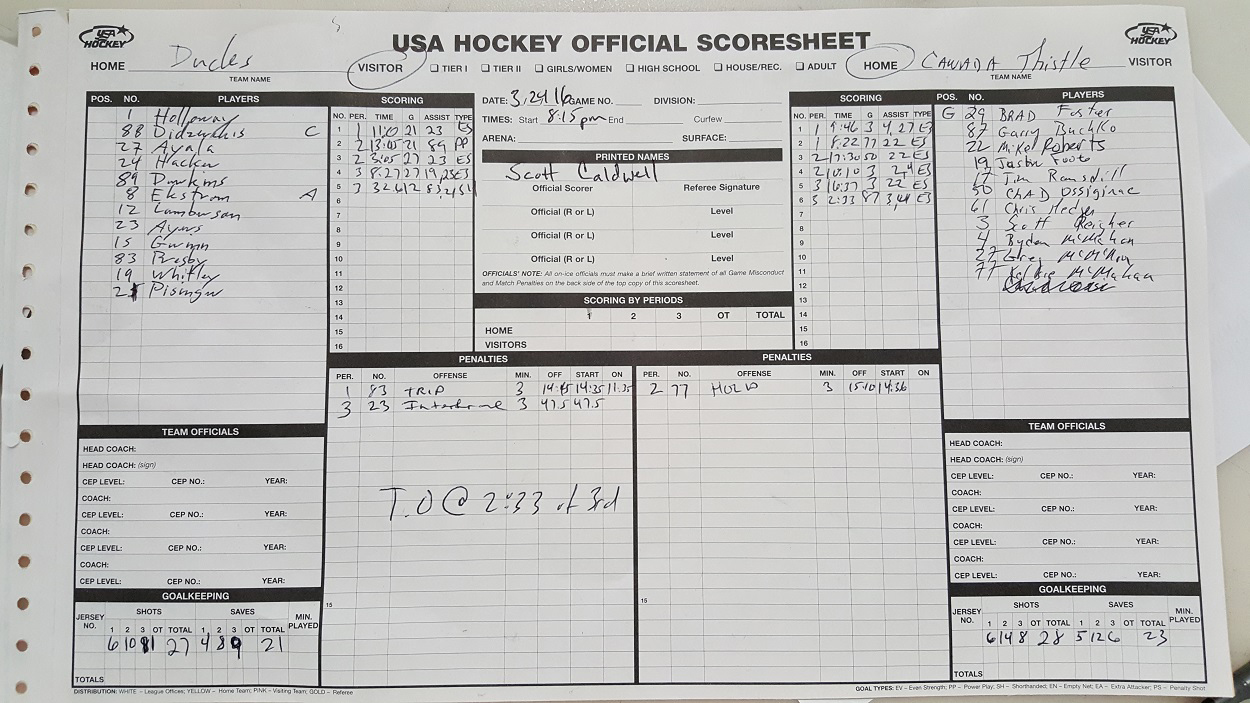 USA HOCKEY OFFICIAL SCORESHEET
USA HOCKEY
USA HOCKEY
HOME Ducks VISITOR
TEAM NAME
TIER I TIER II GIRLS/WOMEN HIGH SCHOOL HOUSE/REC. ADULT
HOME CANADA Thistle VISITOR
TEAM NAME
POS. NO. PLAYERS
1 Holloway
88 C
27 Ayala
24 Hacker
89 Dawkins
8 Ekstrom A
12 Lamberson
23 Ayers
15 Gwinn
83 Presby
19 Whitley
21
SCORING
NO. PER. TIME G ASSIST TYPE
1 1 11:0 21 23 ES
2 2 13:05 21 89 PP
3 2 3:05 27 23 ES
4 3 8:27 27 19,25 ES
5 3
6
7
8
9
10
11
12
13
14
15
16
DATE: 3.24.16 GAME NO. DIVISION:
TIMES: Start 8:15 pm End Curfew
ARENA: SURFACE:
PRINTED NAMES
Scott Caldwell
Official Scorer Referee Signature
Official (R or L) Level
Official (R or L) Level
Official (R or L) Level
OFFICIALS' NOTE: All on-ice officials must make a brief written statement of all Game Misconduct
and Match Penalties on the back side of the top copy of this scoresheet.
SCORING BY PERIODS
1 2 3 OT TOTAL
HOME
VISITORS
SCORING
NO. PER. TIME G ASSIST TYPE
1 1 9:46 3 4,27 ES
2 1 8:22 77 22 ES
3 2 17:30 50 22 ES
4 2 10:10 3 2,4 ES
5 3 16:37 3 22 ES
6 3 2:33 87 3,4 ES
7
8
9
10
11
12
13
14
15
16
POS. NO. PLAYERS
G 29 BRAD Foster
87 Garry Buchko
22 Mike Roberts
19 Jason Foote
17 Jim Ramsdill
50 CHAD
61 Chris Hedger
3 Scott Reigher
4 McMahan
27 Greg
77 McMahan
PENALTIES
PER. NO. OFFENSE MIN. OFF START ON
1 83 TRIP 3 14:35 11:35
3 23 3 47.5 47.5
T.O @ 2:33 of 3rd
15
PENALTIES
PER. NO. OFFENSE MIN. OFF START ON
2 77 HOLD 3 15:10 14:36
15
TEAM OFFICIALS
HEAD COACH:
HEAD COACH: (sign)
CEP LEVEL: CEP NO.: YEAR:
COACH:
CEP LEVEL: CEP NO.: YEAR:
COACH:
CEP LEVEL: CEP NO.: YEAR:
COACH:
CEP LEVEL: CEP NO.: YEAR:
GOALKEEPING
JERSEY NO. SHOTS SAVES MIN. PLAYED
1 2 3 OT TOTAL 1 2 3 OT TOTAL
6 10 11 27 4 8 9 21
TOTALS
TEAM OFFICIALS
HEAD COACH:
HEAD COACH: (sign)
CEP LEVEL: CEP NO.: YEAR:
COACH:
CEP LEVEL: CEP NO.: YEAR:
COACH:
CEP LEVEL: CEP NO.: YEAR:
COACH:
CEP LEVEL: CEP NO.: YEAR:
GOALKEEPING
JERSEY NO. SHOTS SAVES MIN. PLAYED
1 2 3 OT TOTAL 1 2 3 OT TOTAL
6 14 8 28 5 12 6 23
TOTALS
DISTRIBUTION: WHITE – League Offices; YELLOW – Home Team; PINK – Visiting Team; GOLD – Referee
GOAL TYPES: EV – Even Strength; PP – Power Play; SH – Shorthanded; EN – Empty Net; EA – Extra Attacker; PS – Penalty Shot